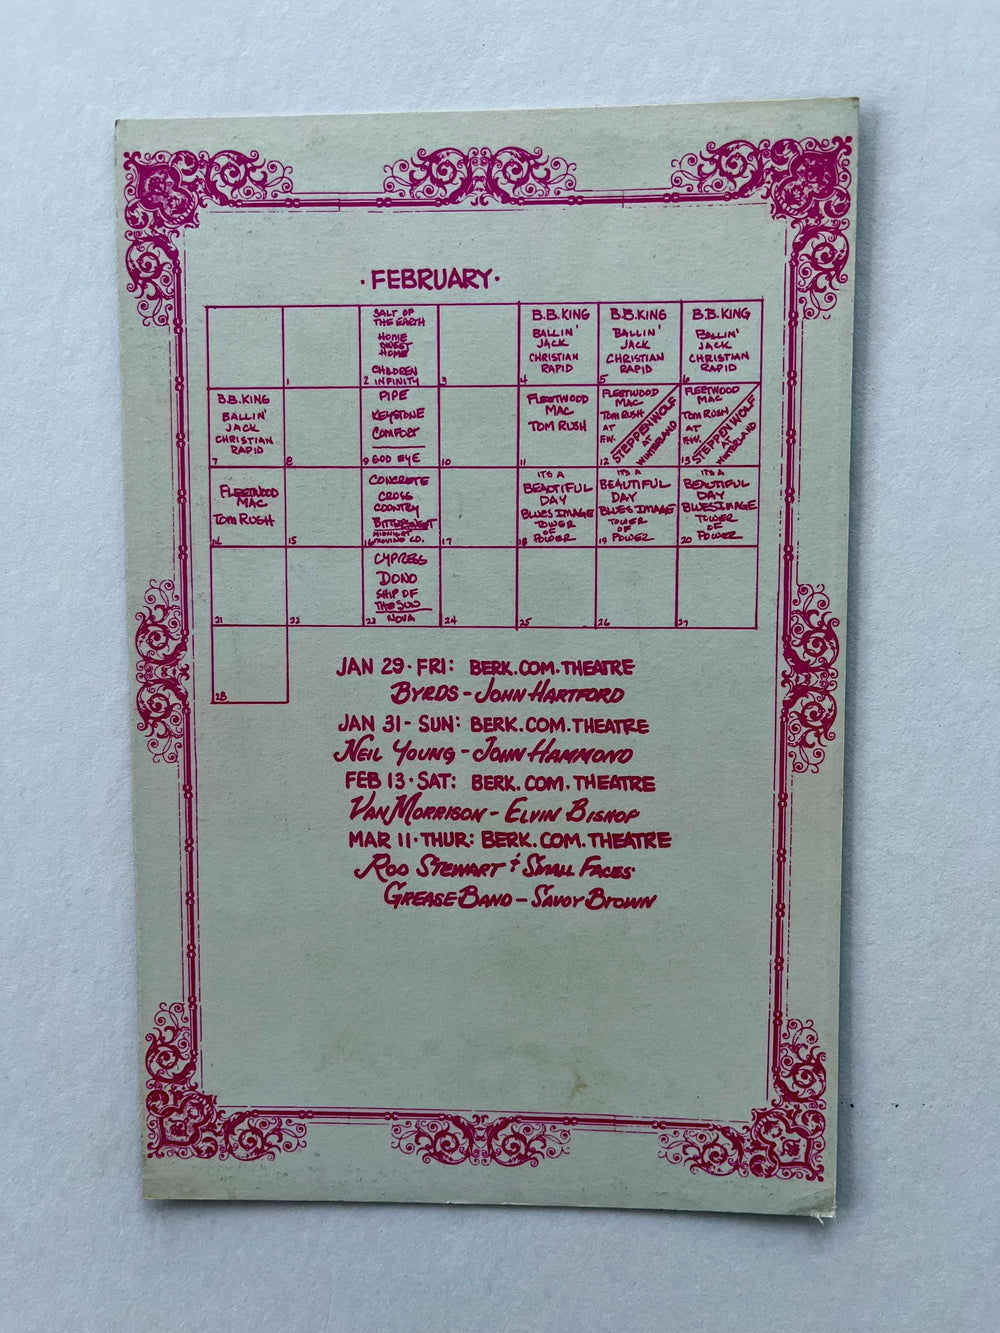 · FEBRUARY ·
SALT OF
THE EARTH
HOME
SWEET
HOME
CHILDREN
INFINITY
B.B. KING
BALLIN'
JACK
CHRISTIAN
RAPID
B.B. KING
BALLIN'
JACK
CHRISTIAN
RAPID
B.B. KING
BALLIN'
JACK
CHRISTIAN
RAPID
1
2
3
4
5
6
B.B. KING
BALLIN'
JACK
CHRISTIAN
RAPID
PIPE
KEYSTONE
COMFORT
GOD EYE
FLEETWOOD
MAC
TOM RUSH
FLEETWOOD
MAC
TOM RUSH
AT
F.W.
STEPPENWOLF
AT
WINTERLAND
FLEETWOOD
MAC
TOM RUSH
AT
F.W.
STEPPENWOLF
AT
WINTERLAND
7
8
9
10
11
12
13
FLEETWOOD
MAC
TOM RUSH
CONCRETE
CROSS
COUNTRY
BITTERSWEET
MIDNIGHT
MOVING CO.
IT'S A
BEAUTIFUL
DAY
BLUES IMAGE
TOWER
OF
POWER
IT'S A
BEAUTIFUL
DAY
BLUES IMAGE
TOWER
OF
POWER
IT'S A
BEAUTIFUL
DAY
BLUES IMAGE
TOWER
OF
POWER
14
15
16
17
18
19
20
CYPRESS
DONO
SHIP OF
THE SUN
NOVA
21
22
23
24
25
26
27
28
JAN 29 · FRI: BERK. COM. THEATRE
BYRDS - JOHN HARTFORD
JAN 31 - SUN: BERK. COM. THEATRE
NEIL YOUNG - JOHN HAMMOND
FEB 13 · SAT: BERK. COM. THEATRE
VAN MORRISON - ELVIN BISHOP
MAR 11 · THUR: BERK. COM. THEATRE
ROD STEWART & SMALL FACES
GREASE BAND - SAVOY BROWN